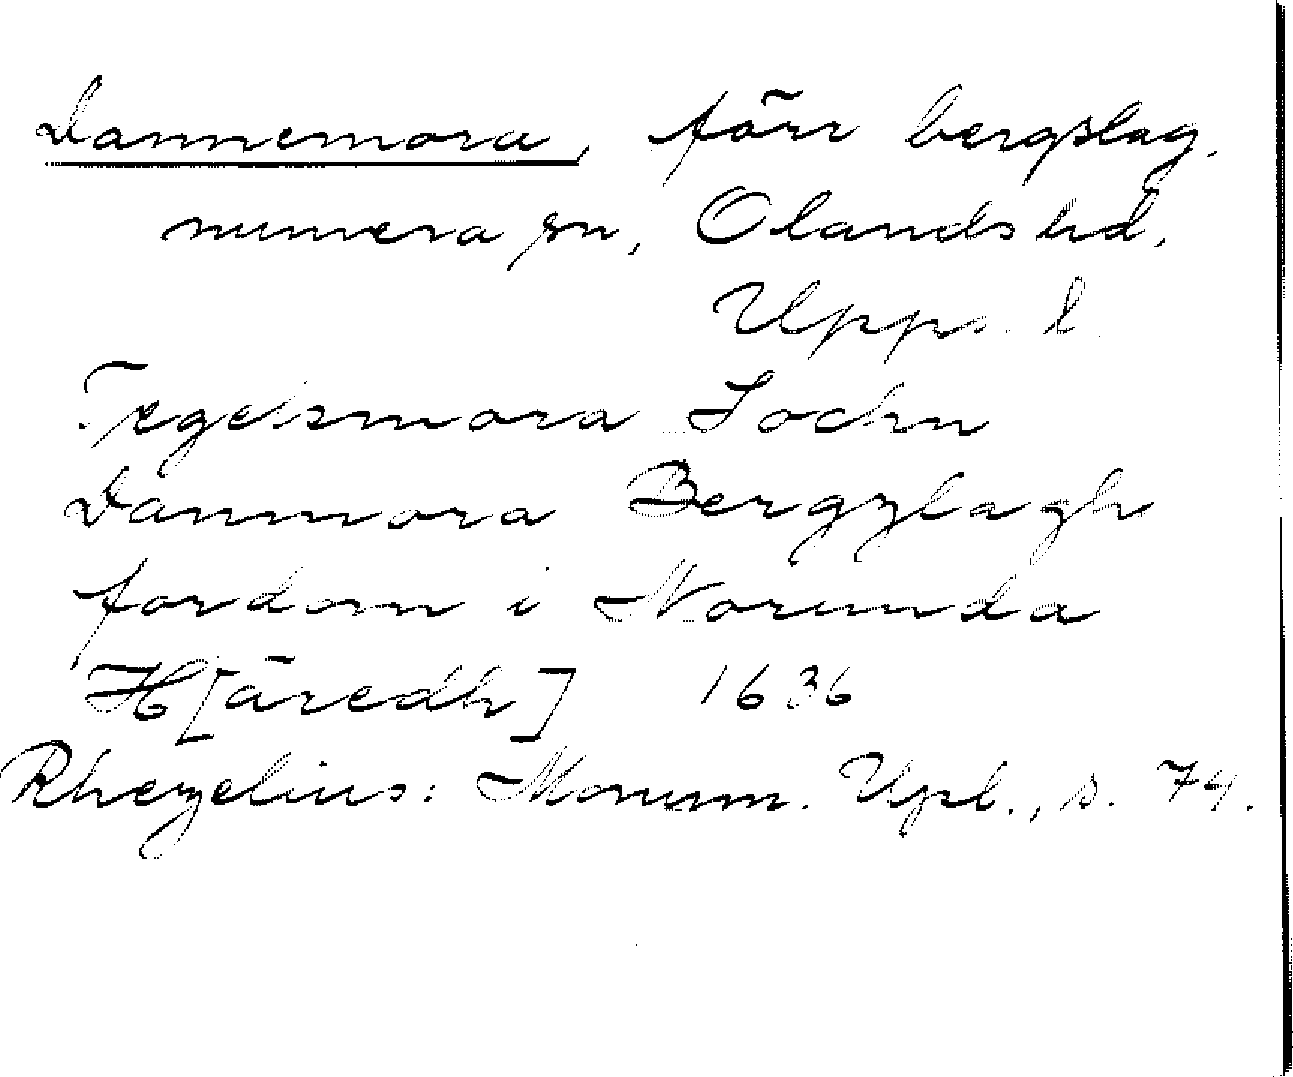 Dannemora, förr bergslag,
numera sn, Olands hd,
Upps. l.
Tegelsmora Sochn
Danmora Bergzlagh
fordom i Norunda
H[äredh] 1636
Rhezelius: Monum. Upl., s. 74.